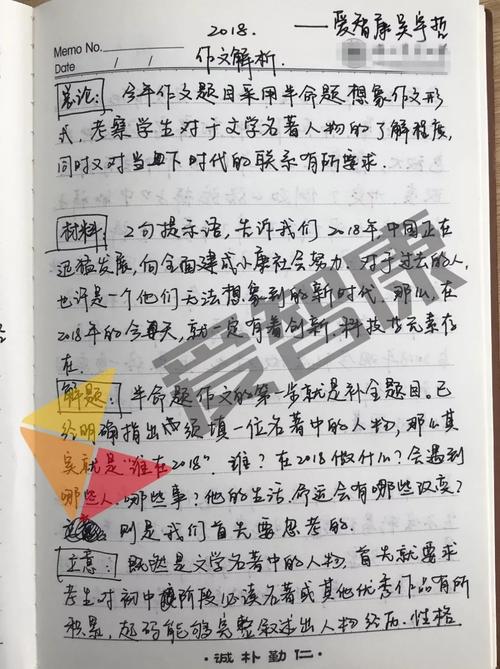 2018. ——爱智康吴宇哲
Memo No.
Date / /
作文解析.
总论: 今年作文题目采用半命题想象作文形
式,考察学生对于文学名著人物的了解程度,
同时又对当下时代的联系有所要求.
材料: 2句提示语,告诉我们2018年中国正在
迅猛发展,向全面建成小康社会努力.对于过去的人,
也许是一个他们无法想象到的新时代.那么,在
2018年的今天,就一定有着创新.科技等元素存
在.
解题: 半命题作文的第一步就是补全题目.已
经明确指出必须填一位名著中的人物,那么其
实就是"谁在2018".谁?在2018做什么?会遇到
哪些人.哪些事?他的生活.命运会有哪些改变?
则是我们首先要思考的.
立意: 既然是文学名著中的人物,首先就要求
考生对初中阶段必读名著或其他优秀作品有所
积累,起码能够完整叙述出人物经历.性格
诚朴勤仁
爱智康